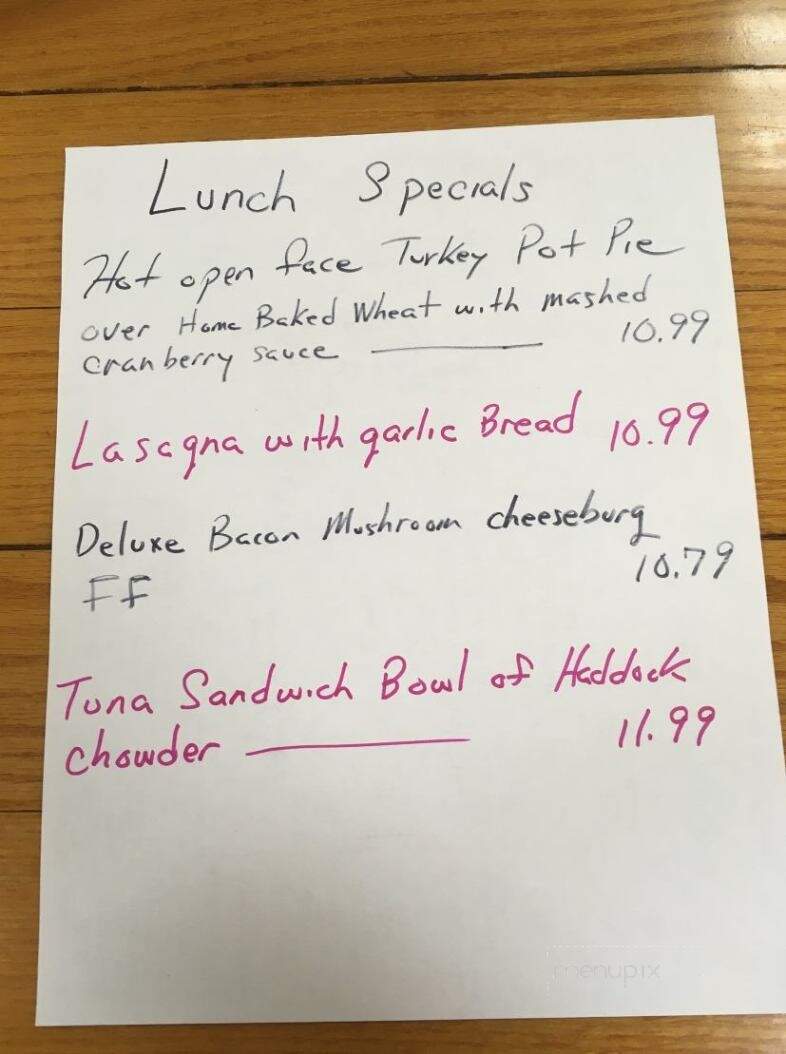 Lunch Specials
Hot open face Turkey Pot Pie
over Home Baked Wheat with mashed
cranberry sauce 10.99
Lasagna with garlic Bread 10.99
Deluxe Bacon Mushroom cheeseburg
FF 10.79
Tuna Sandwich Bowl of Haddock
chowder 11.99
menupix